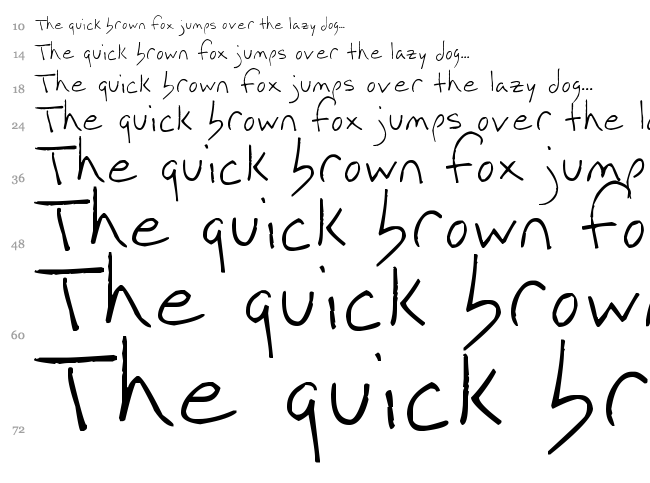 10 The quick brown fox jumps over the lazy dog...
14 The quick brown fox jumps over the lazy dog...
18 The quick brown fox jumps over the lazy dog...
24 The quick brown fox jumps over the l
36 The quick brown fox jump
48 The quick brown fo
60 The quick brown
72 The quick br